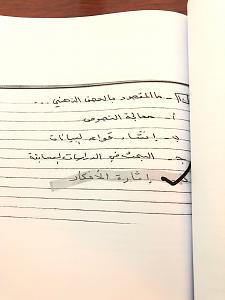 ما المقصود بالعصف الذهني ...
أ - معالجة النصوص
ب - إنشاء قواعد بيانات
ج - البحث في الدراسات السابقة
إثارة الأفكار